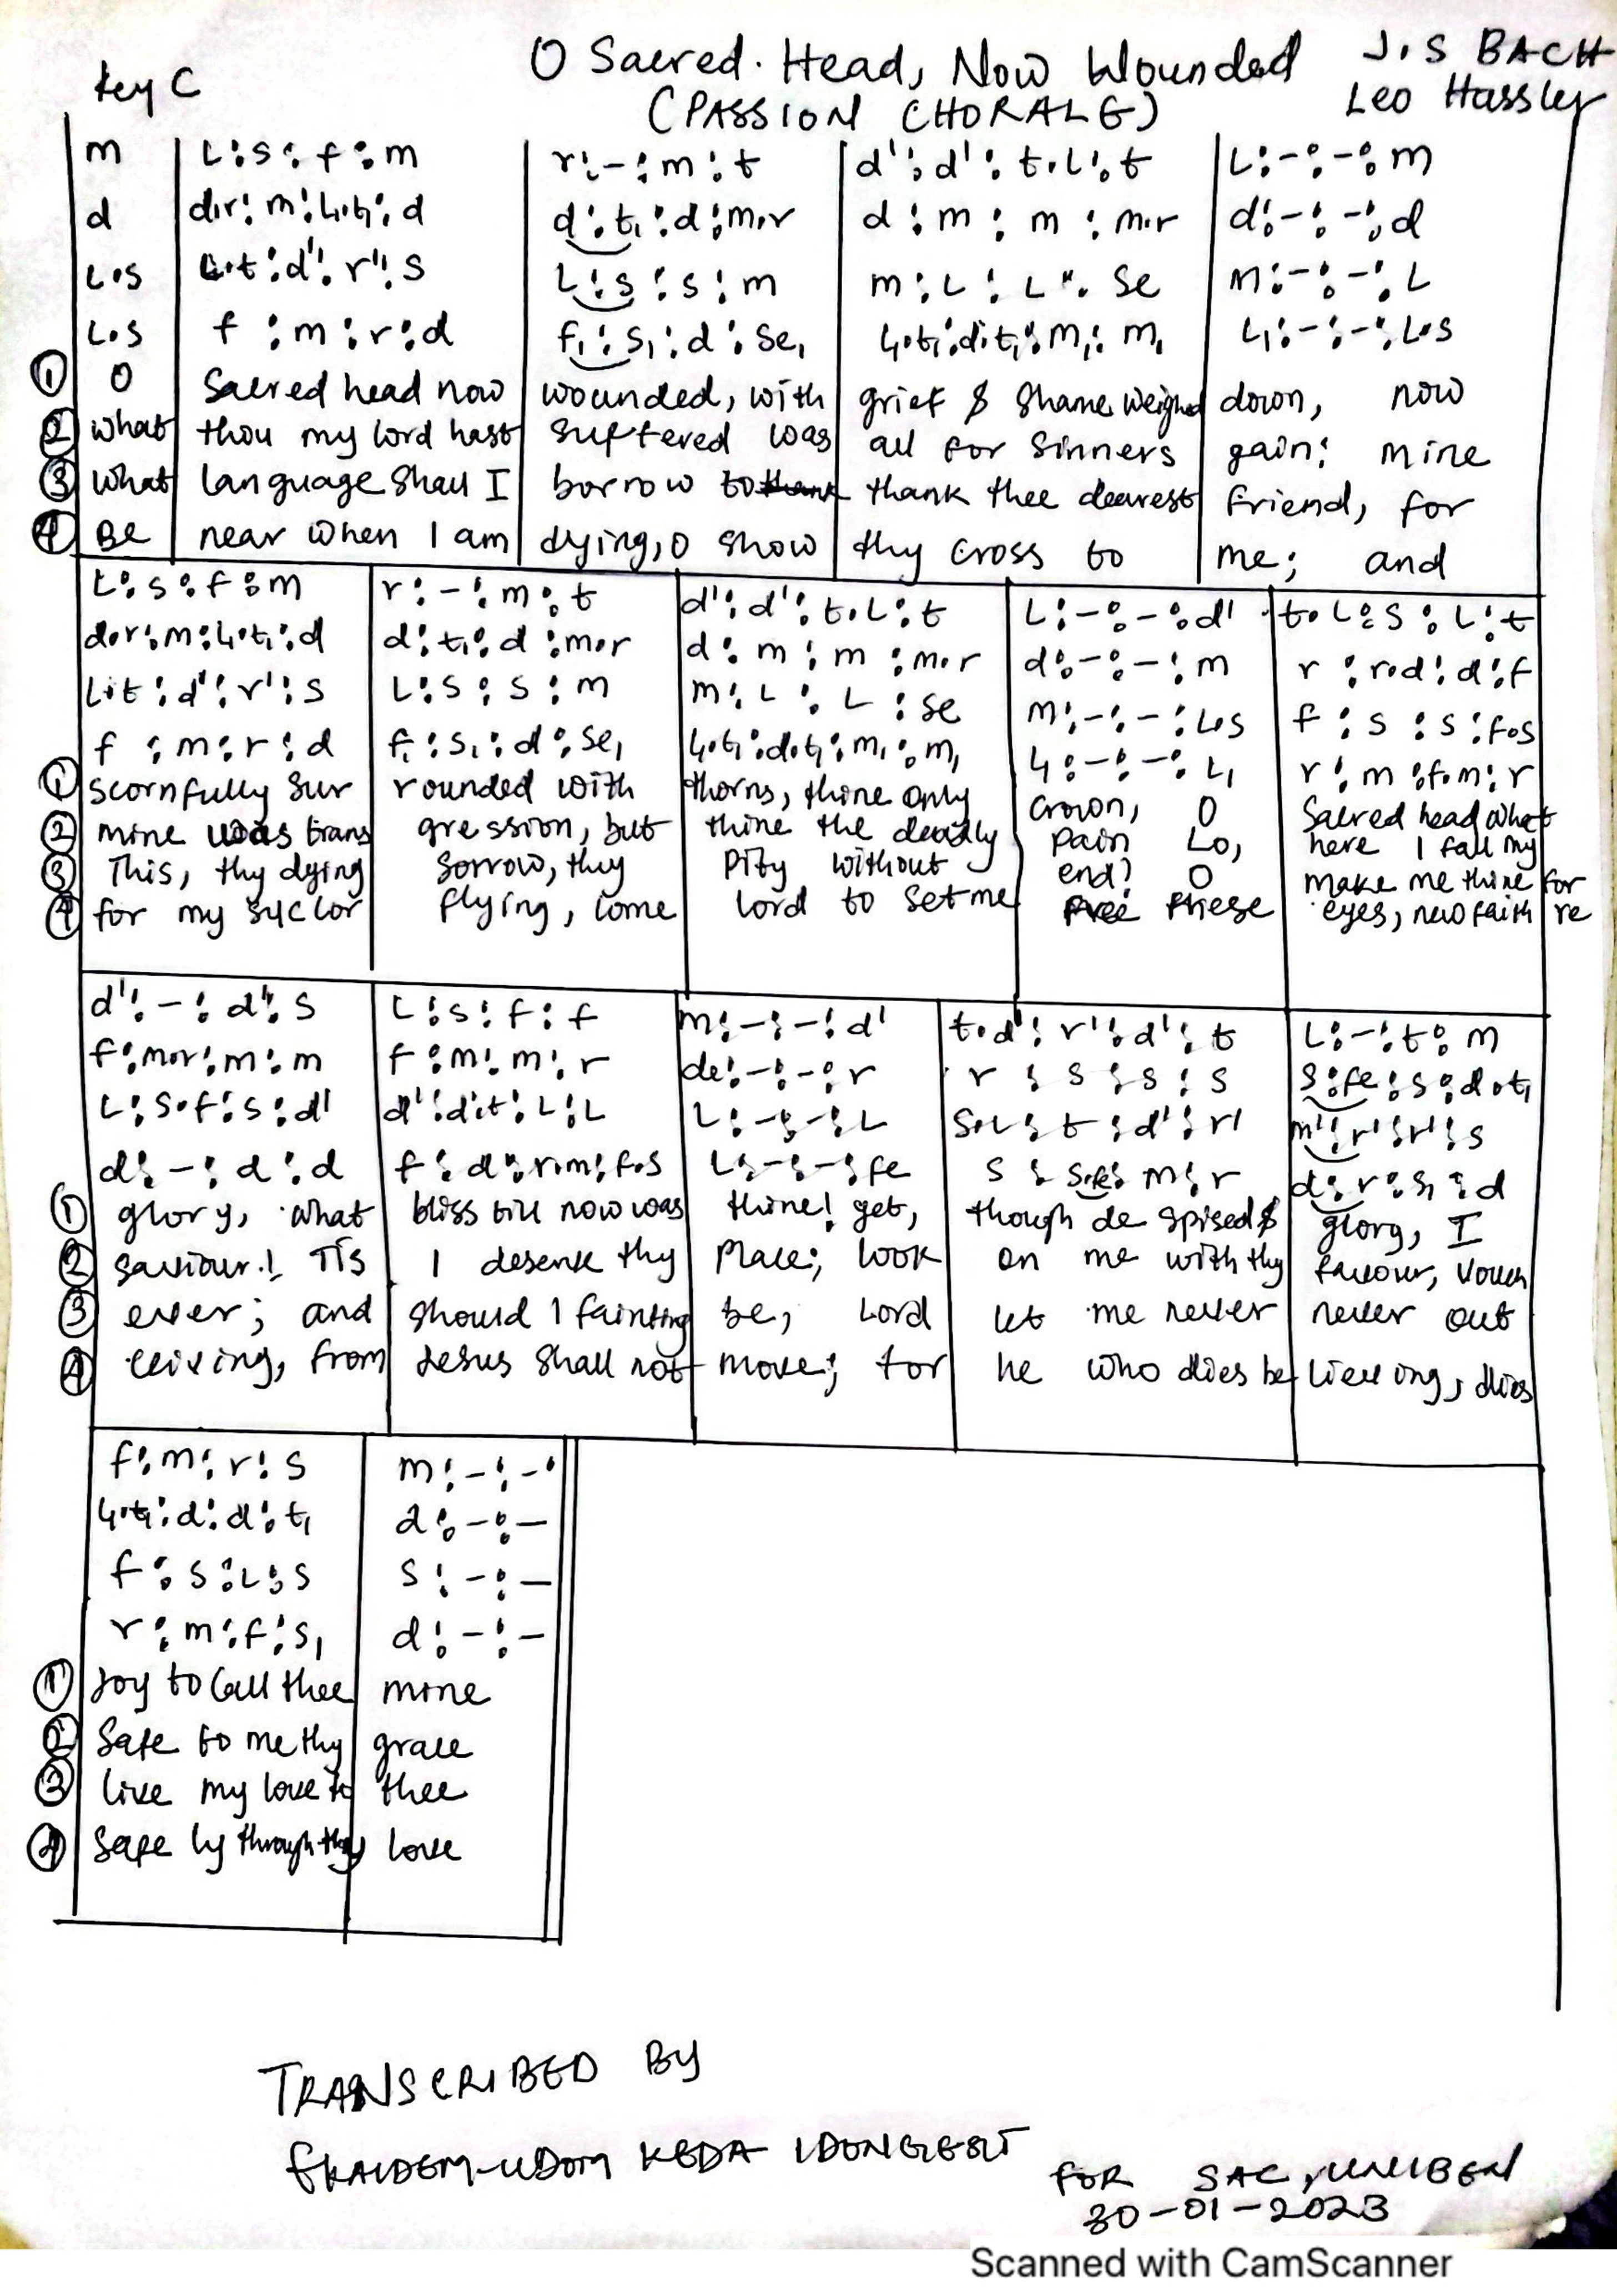 O Sacred. Head, Now Wounded
J.S BACH
Key C
(PASSION CHORALE)
Leo Hassler
m | L:s:f:m | r:-:m:t | d':d':t.L:t | L:-:-:m
d | d.r:m:l₁.t₁:d | d:t₁:d:m.r | d:m:m:m.r | d:-:-:d
L.s | L.t:d':r':s | L:s:s:m | m:L:L:se | m:-:-:L
L.s | f:m:r:d | f₁:s₁:d:se₁ | l₁.t₁:d.t₁:m₁:m₁ | L₁:-:-:L.s
① O | Sacred head now | wounded, with | grief & shame weighed | down, now
② what | thou my lord hast | suffered was | all for sinners | gain: mine
③ what | language shall I | borrow to | thank thee dearest | friend, for
④ Be | near when I am | dying, o show | thy cross to | me; and
L:s:f:m | r:-:m:t | d':d':t.L:t | L:-:-:d' | t.L:s:L:t
d.r:m:l₁.t₁:d | d:t₁:d:m.r | d:m:m:m.r | d:-:-:m | r:r.d:d:f
L.t:d':r':s | L:s:s:m | m:L:L:se | m:-:-:L.s | f:s:s:f.s
f:m:r:d | f₁:s₁:d:se₁ | l₁.t₁:d.t₁:m₁:m₁ | l₁:-:-:L₁ | r:m:f.m:r
① scornfully sur | rounded with | thorns, thine only | crown, O | Sacred head what
② mine was trans | gression, but | thine the deadly | pain Lo, | here I fall my
③ This, thy dying | sorrow, thy | pity without | end? O | make me thine for
④ for my succor | flying, come | lord to set me | free these | eyes, new faith re
d':-:d':s | L:s:f:f | m:-:-:d' | t.d':r':d':t | L:-:t:m
f:m.r:m:m | f:m:m:r | de:-:-:r | r:s:s:s | s:fe:s:d.t₁
L:s.f:s:d' | d':d'.t:L:L | L:-:-:L | s.L:t:d':r' | m':r':r':s
d:-:d:d | f:d:r.m:f.s | L:-:-:fe | s:s.f:m:r | d:r:s₁:d
① glory, what | bliss till now was | thine! yet, | though de spised & | glory, I
② saviour! Tis | I deserve thy | Place; look | on me with thy | favour, vouch
③ ever; and | should I fainting | be, Lord | let me never | never out
④ ceiving, from | Jesus shall not | move; for | he who dies be | lieving, dies
f:m:r:s | m:-:-:
l₁.t₁:d:d:t₁ | d:-:-
f:s:L:s | s:-:-
r:m:f:s₁ | d:-:-
① Joy to call thee | mine
② Safe to me thy | grace
③ live my love to | thee
④ Safe ly through thy | love
TRANSCRIBED BY
EKAIDEM-UDOM KEDA IDONGESIT
FOR SAC, UNIBEN
30-01-2023
Scanned with CamScanner